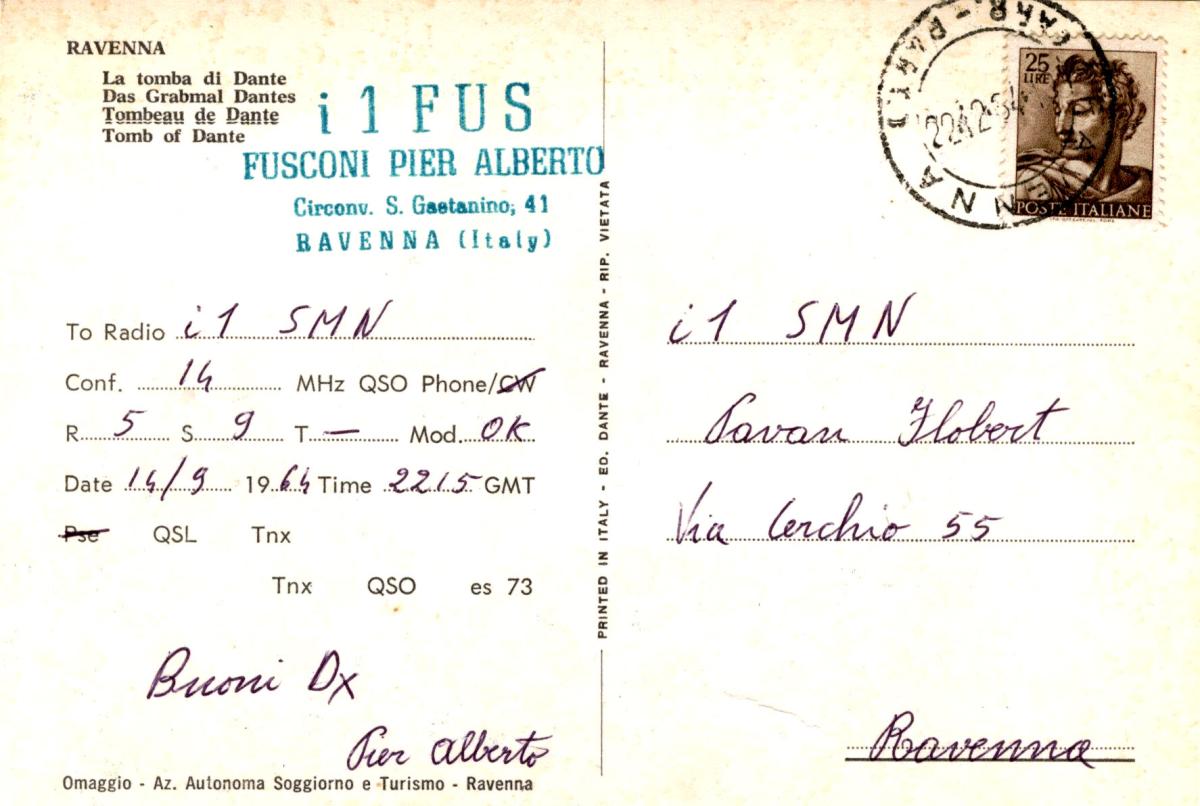 RAVENNA
La tomba di Dante
Das Grabmal Dantes
Tombeau de Dante
Tomb of Dante
i 1 FUS
FUSCONI PIER ALBERTO
Circonv. S. Gaetanino, 41
RAVENNA (Italy)
To Radio i1 SMN
Conf. 14 MHz QSO Phone/CW
R. 5 S 9 T. — Mod. OK
Date 14/9 1964 Time 2215 GMT
Pse QSL Tnx
Tnx QSO es 73
Buoni Dx
Pier Alberto
Omaggio - Az. Autonoma Soggiorno e Turismo - Ravenna
PRINTED IN ITALY - ED. DANTE - RAVENNA - RIP. VIETATA
25 LIRE
POSTE ITALIANE
i1 SMN
Pavan Flobert
Via Cerchio 55
Ravenna